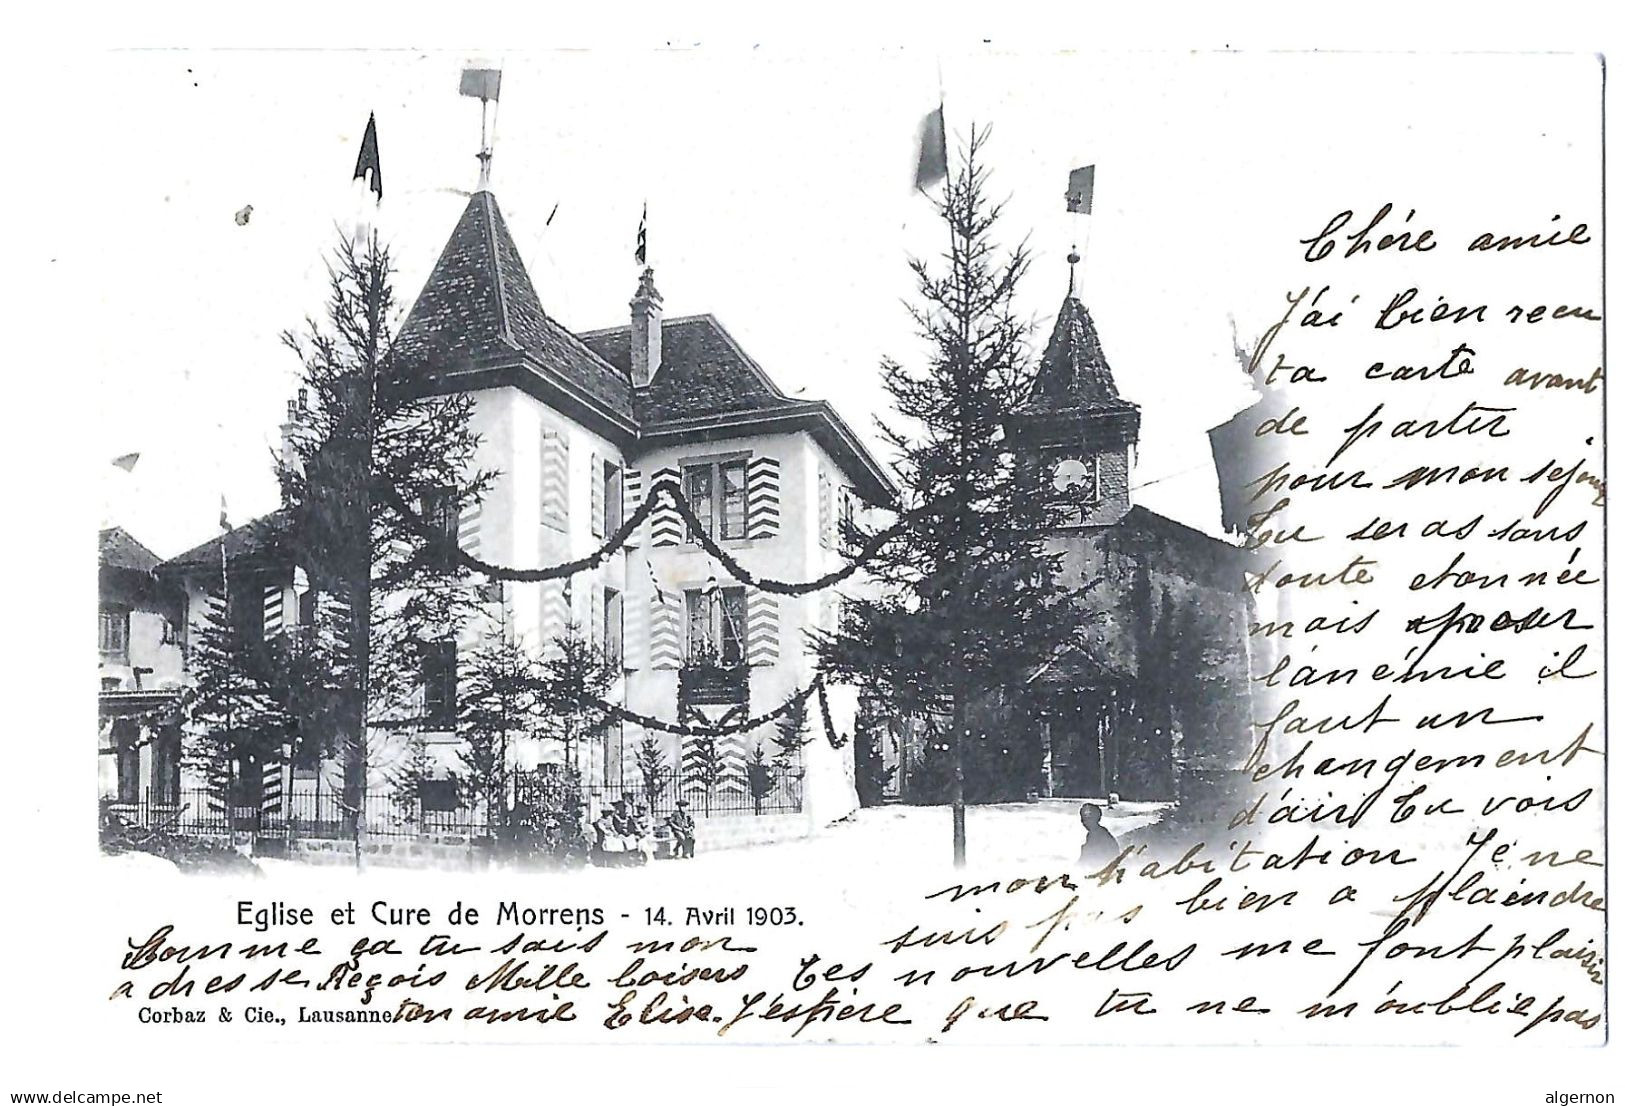 Chère amie
J'ai bien recu
ta carte avant
de partir
pour mon sejour
Tu seras sans
doute etonnée
mais pour
l'anémie il
faut un
changement
d'air Tu vois
mon habitation Je ne
suis pas bien a plaindre
Tes nouvelles me font plaisir
J'éspère que tu ne m'oublie pas
Eglise et Cure de Morrens - 14. Avril 1903.
Comme ça tu sais mon
adresse Reçois Mille baisers
ton amie Elise.
Corbaz & Cie., Lausanne
delcampe.net
algernon